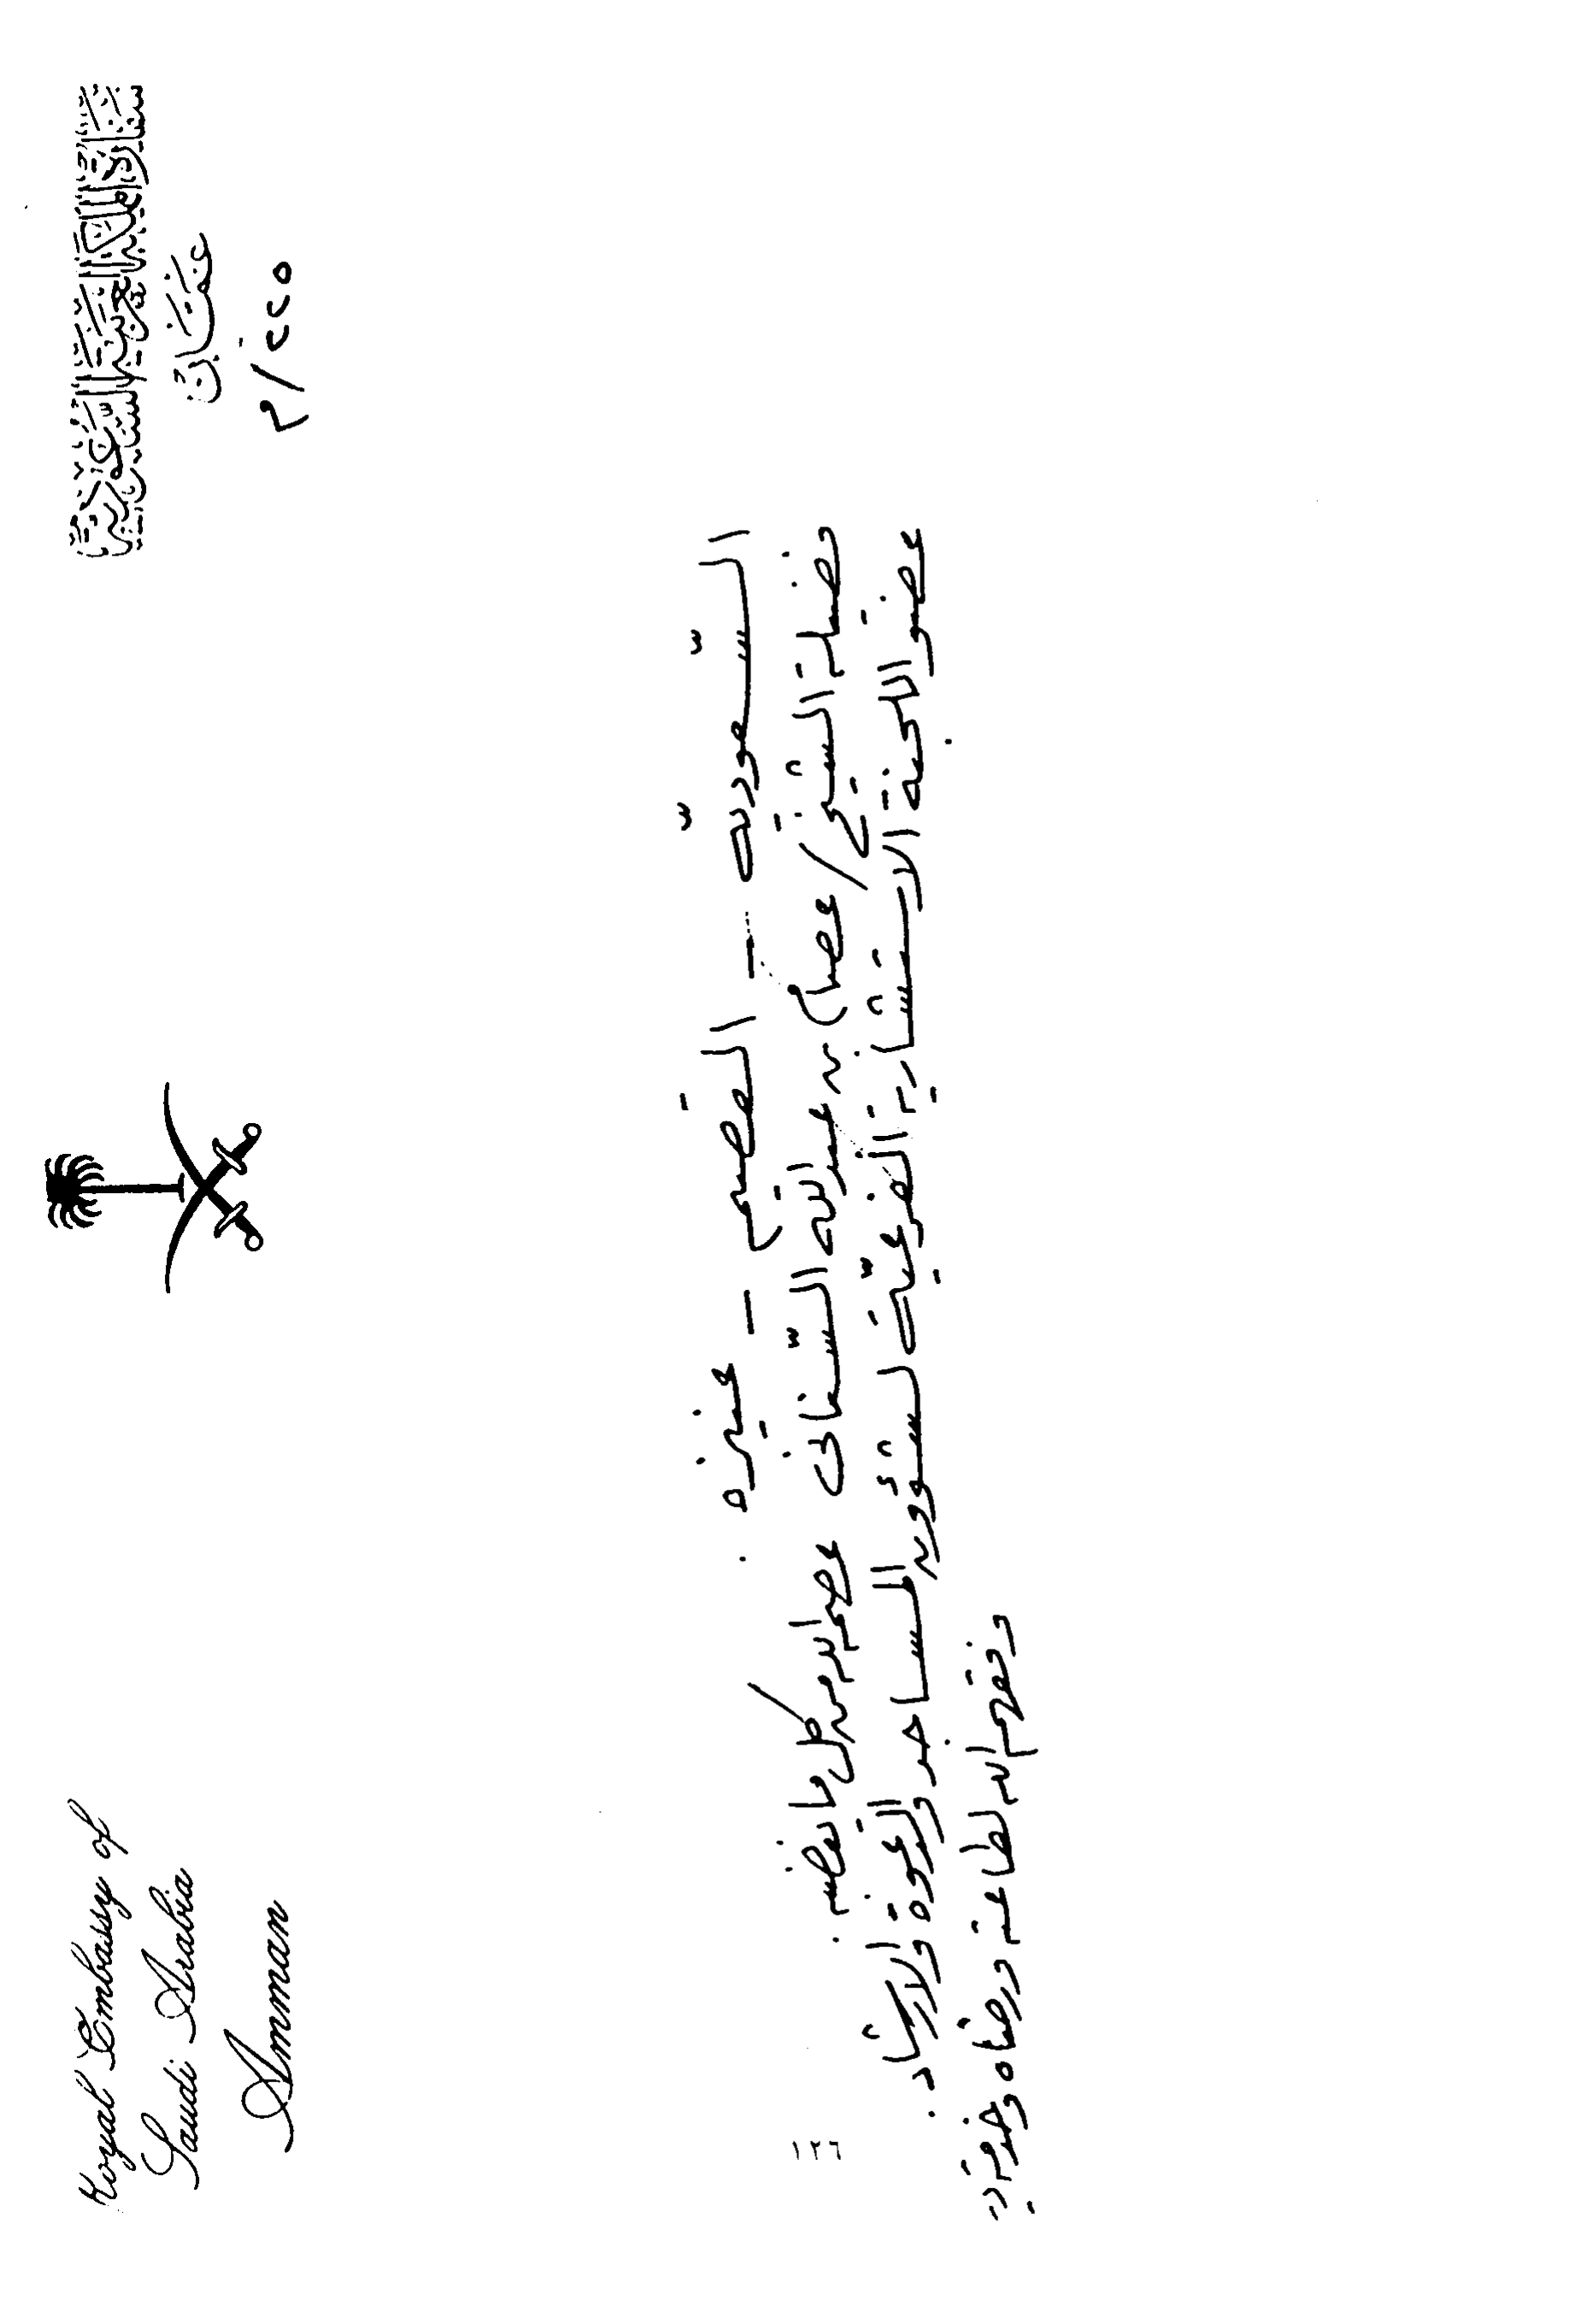 سفارة المملكة العربية السعودية
عمّان
Royal Embassy of
Saudi Arabia
Amman
السّعوديّة - القصيم - عنيزه .
فضيلة الشيخ / عصام بن عبدالله السّناني عصمه الله من كل ما يضيمه .
عضو اللجنة الاستشارية الفرعيّة لشؤون المساجد والدعوة والارشاد .
وفقهم الله لطاعته ورضاه وخدمة
١٢٦